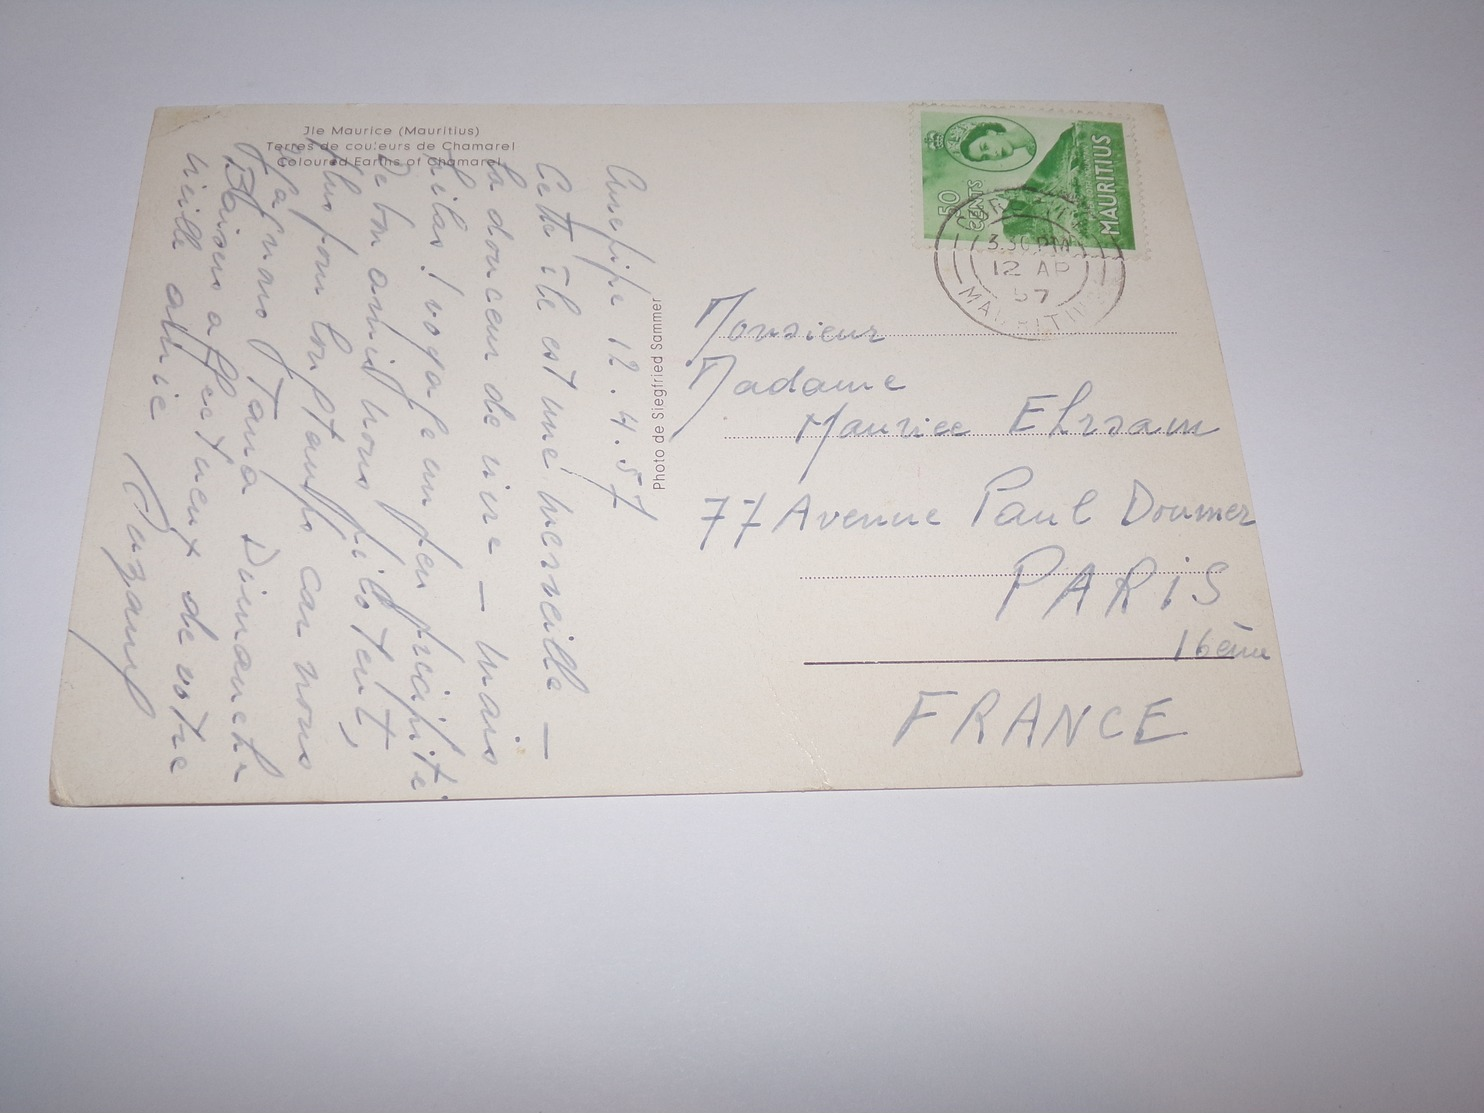 Jle Maurice (Mauritius)
Terres de couleurs de Chamarel
Coloured Earths of Chamarel
Curepipe 12.4.57
Cette île est une merveille -
la douceur de vivre - mais
hélas! voyage un peu précipité.
De bon amis nous pilotent,
plus pour longtemps car nous
Tana Dimanche
Baisers affectueux de votre
vieille amie
Photo de Siegfried Sammer
50
CENTS
MAURITIUS
3.30 PM
12 AP
57
MAURITIUS
Monsieur
Madame
Maurice Ehrsam
77 Avenue Paul Doumer
PARIS
16ème
FRANCE